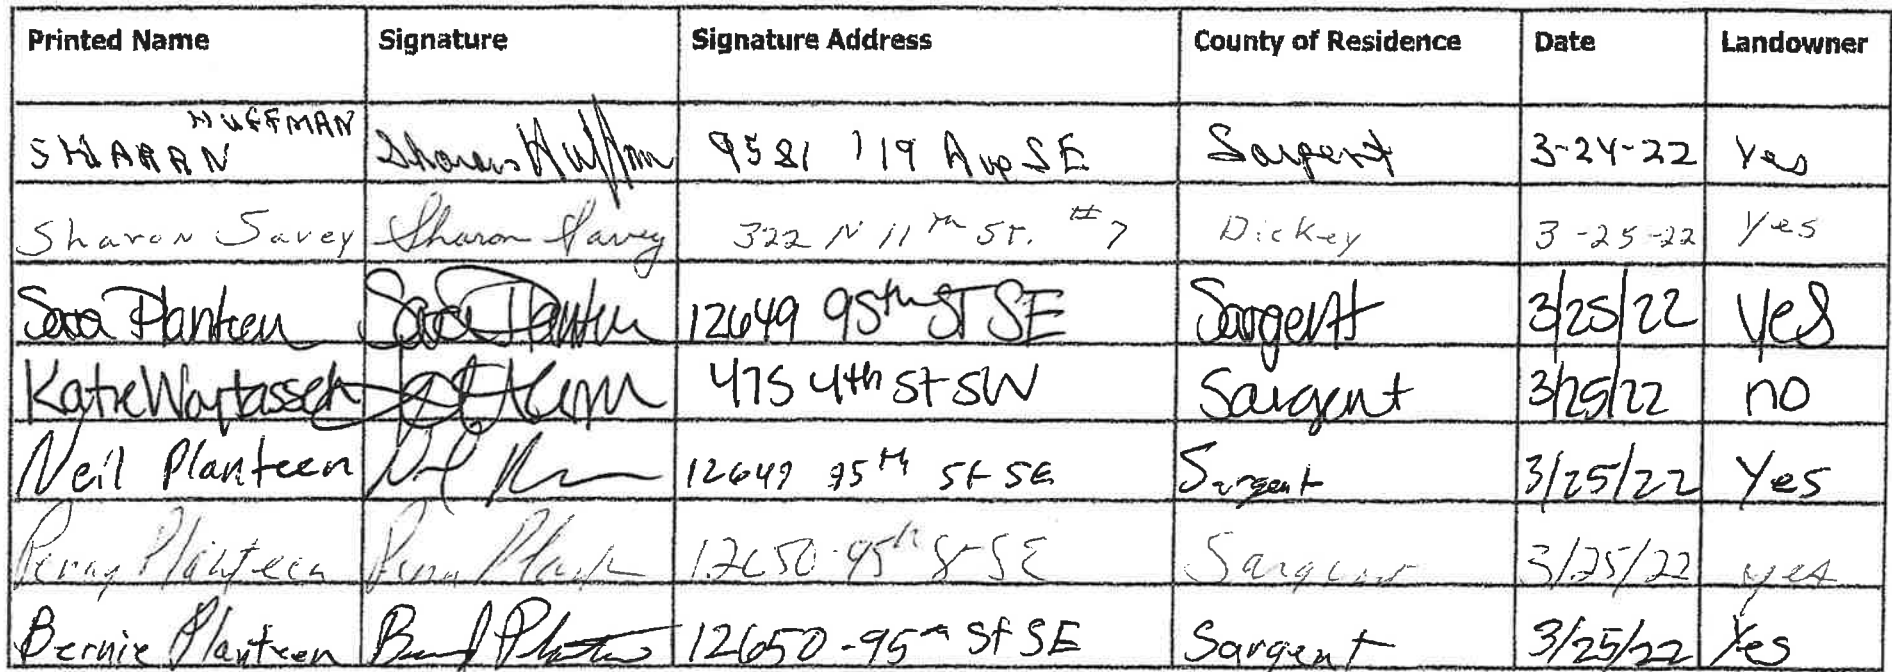 Printed Name Signature Signature Address County of Residence Date Landowner
HUFFMAN
SHARAN Sharan Huffman 9581 119 Ave SE Sargent 3-24-22 Yes
Sharon Savey Sharon Savey 322 N 11th St. #7 Dickey 3-25-22 Yes
Sara Planteen Sara Planteen 12649 95th ST SE Sargent 3/25/22 Yes
Katie 475 4th St SW Sargent 3/25/22 no
Neil Planteen 12649 95th St SE Sargent 3/25/22 Yes
Perry Planteen 12650-95th St SE Sargent 3/25/22 yes
Bernie Planteen 12650-95th St SE Sargent 3/25/22 Yes